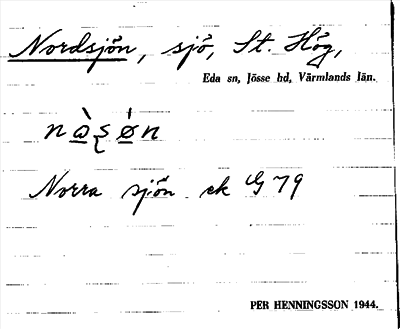 Nordsjön, sjö, St. Hög,
Eda sn, Jösse hd, Värmlands län.
nꞷ̀ʂø̀n
Norra sjön ek G 79
PER HENNINGSSON 1944.